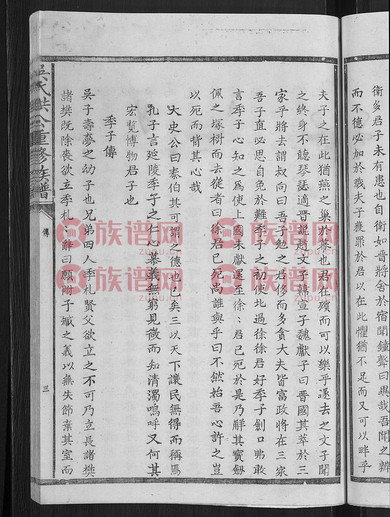 衛多君子未有患也自衛如晉將舍於宿聞鐘聲曰異哉吾聞之辯
而不德必加於戮夫子獲罪於君以在此懼猶不足而又可以畔乎
夫子之在此猶燕之巢於幕也君在殯而可以樂乎遂去之文子聞
之終身不聽琴瑟適晉說趙文子韓宣子魏獻子曰晉國其萃於三
家乎將去謂叔向曰吾子勉之君侈而多良大夫皆富政將在三家
吾子直必思自免於難季子之初使北過徐徐君好季子劍口弗敢
言季子心知之為使上國未獻還至徐徐君已死於是乃解其寶劍
佩之塚樹而去從者曰徐君已死尚誰與乎曰不然始吾心許之豈
以死而背其心哉
太史公曰泰伯其可謂之德也已矣三以天下讓民無得而稱焉
孔子言延陵季子之仁心慕義無窮見微而知清濁嗚呼又何其
宏覽博物君子也
季子傳
吳子壽夢之幼子也兄弟四人季札賢父欲立之不可乃立長諸樊
諸樊既除喪欲立季札札辭曰願附子臧之義以無失節棄其室而
吳氏
重修族譜
傳
三
族谱网
zupu.cn